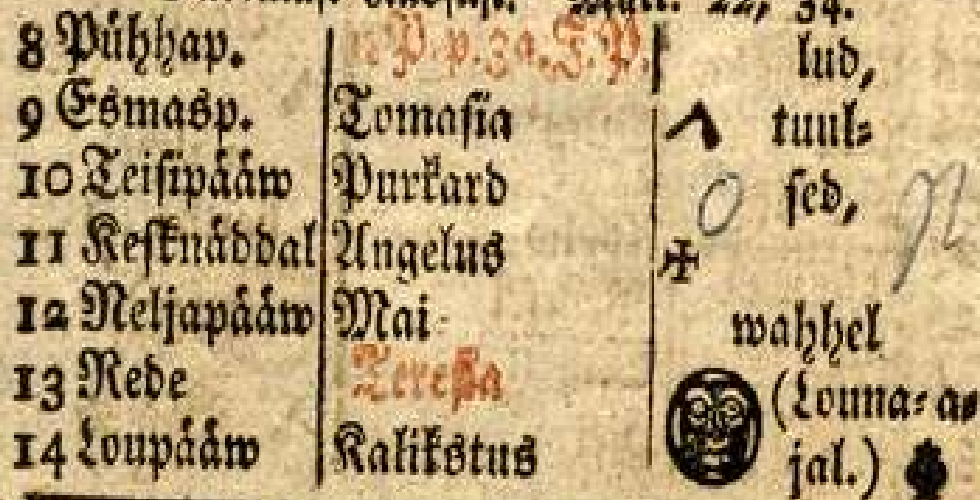 Matt. 22, 34.
8 Pühhap. P. p. 3a. J. P. lud,
9 Esmasp. Tomasia tuul⸗
10 Teisipääw Purkard sed,
11 Kesknäddal Angelus ✠
12 Neljapääw Mai wahhel
13 Rede Teresia (Louna⸗a⸗
14 Loupääw Kalikstus jal.)